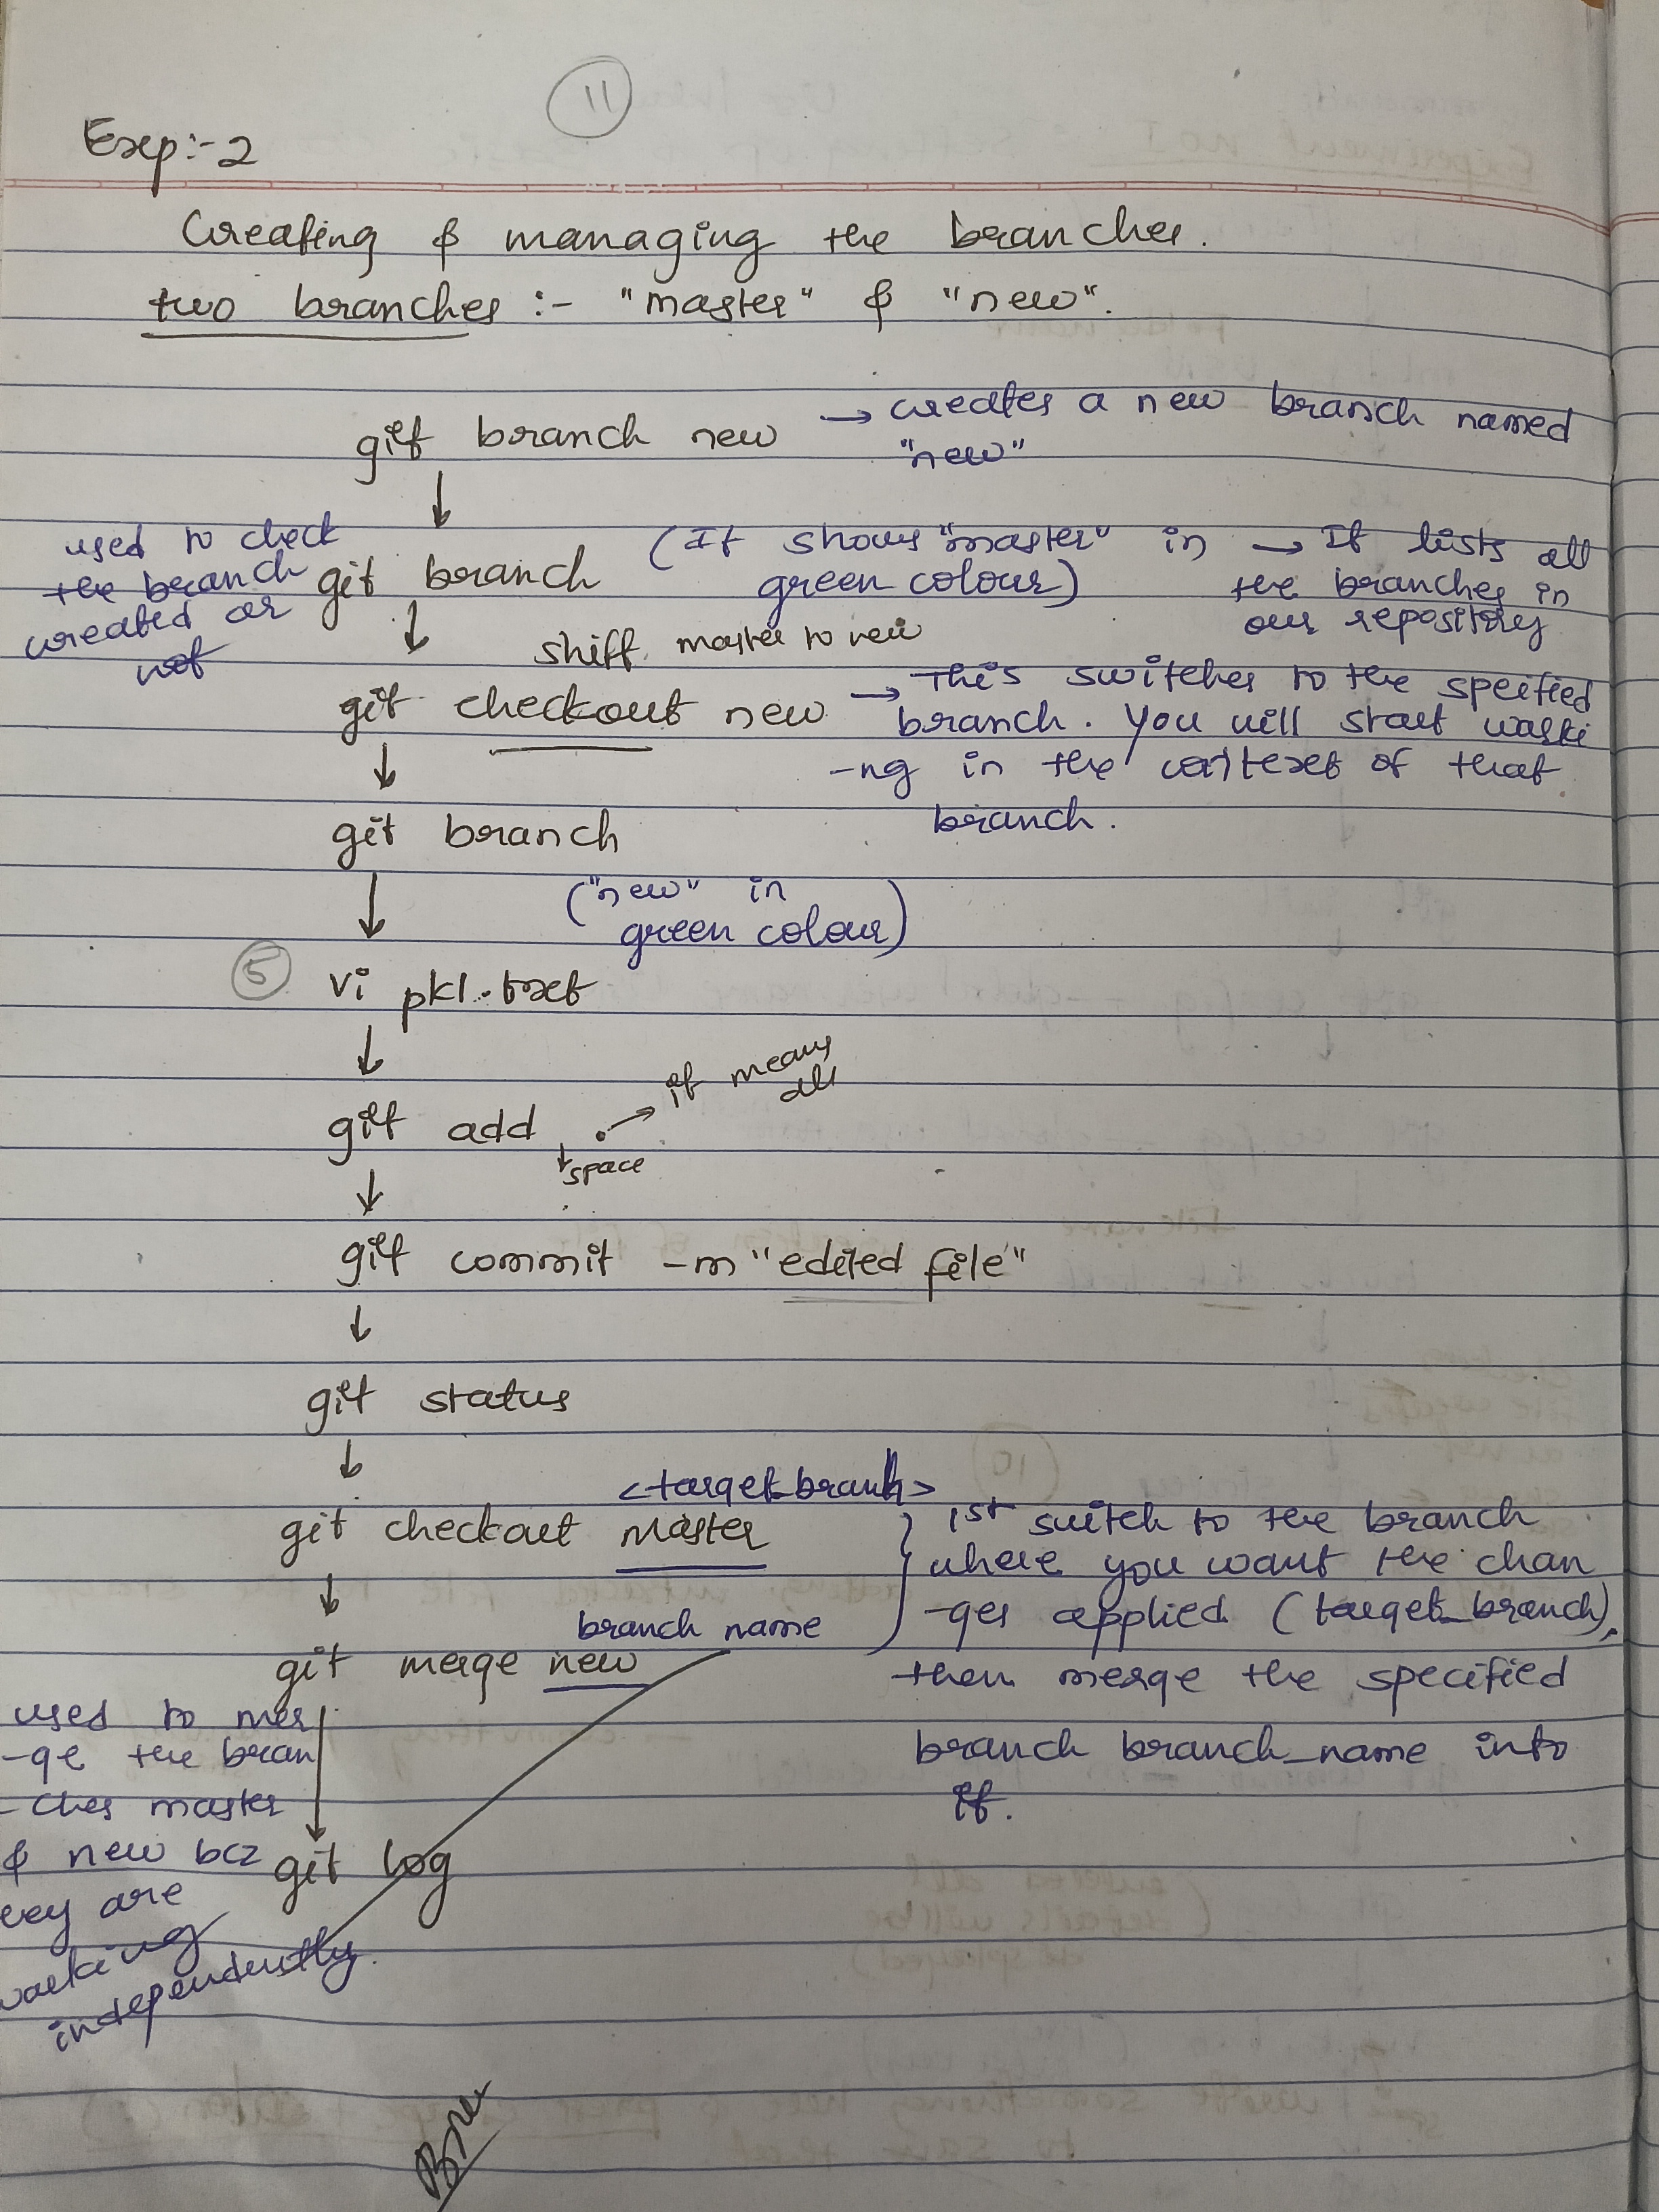 11
Exp:-2
Creating & managing the branches.
two branches :- "master" & "new".
git branch new → creates a new branch named
"new"
↓
used to check
the branch
created or
not
git branch (It shows "master" in
green colour)
→ It lists all
the branches in
our repository
↓
shift master to new
git checkout new → This switches to the speified
branch. You will start worki
-ng in the context of that
branch.
↓
git branch
("new" in
green colour)
↓
5 vi pkl.txt
↓
git add . → it means
all
↓ space
↓
git commit -m "edited file"
↓
git status
↓
<target_branch>
git checkout master
↓
branch name
git merge new
} 1st switch to the branch
where you want the chan
-ges applied (target_branch),
then merge the specified
branch branch_name into
it.
used to mer
-ge the bran
-ches master
& new bcz
ey are
working
independently.
↓
git log